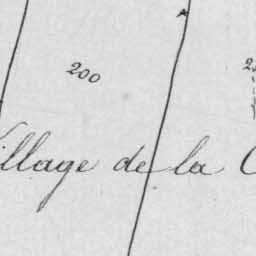 200
Village de la